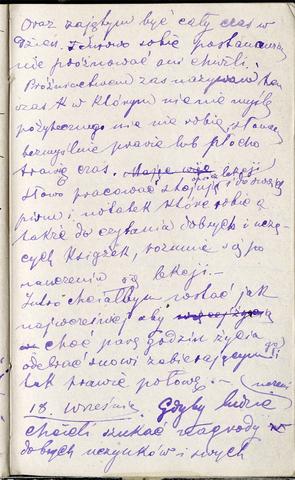 Oraz zajętym być cały czas w
dzień. Znowu robię postanowie-
nie próżnować ani chwili.
Próżniactwem zaś nazywam ten
czas w którym nic nie myślę
pożytecznego nie robię,
bezmyślnie prawie lub płocho
trawię czas. lekcji
pracować
pism i notatek które robię a
także do czytania dobrych i uczą-
cych książek, rozumie się po
nauczeniu się lekcji. —
Jutro chciałbym wstać jak
najwcześniej aby
choć parę godzin życia
odebrać snowi zabierającemu go
tak prawie połowę. —
18. Września. Gdyby ludzie
chcieli szukać nagrody
dobrych uczynków i swych